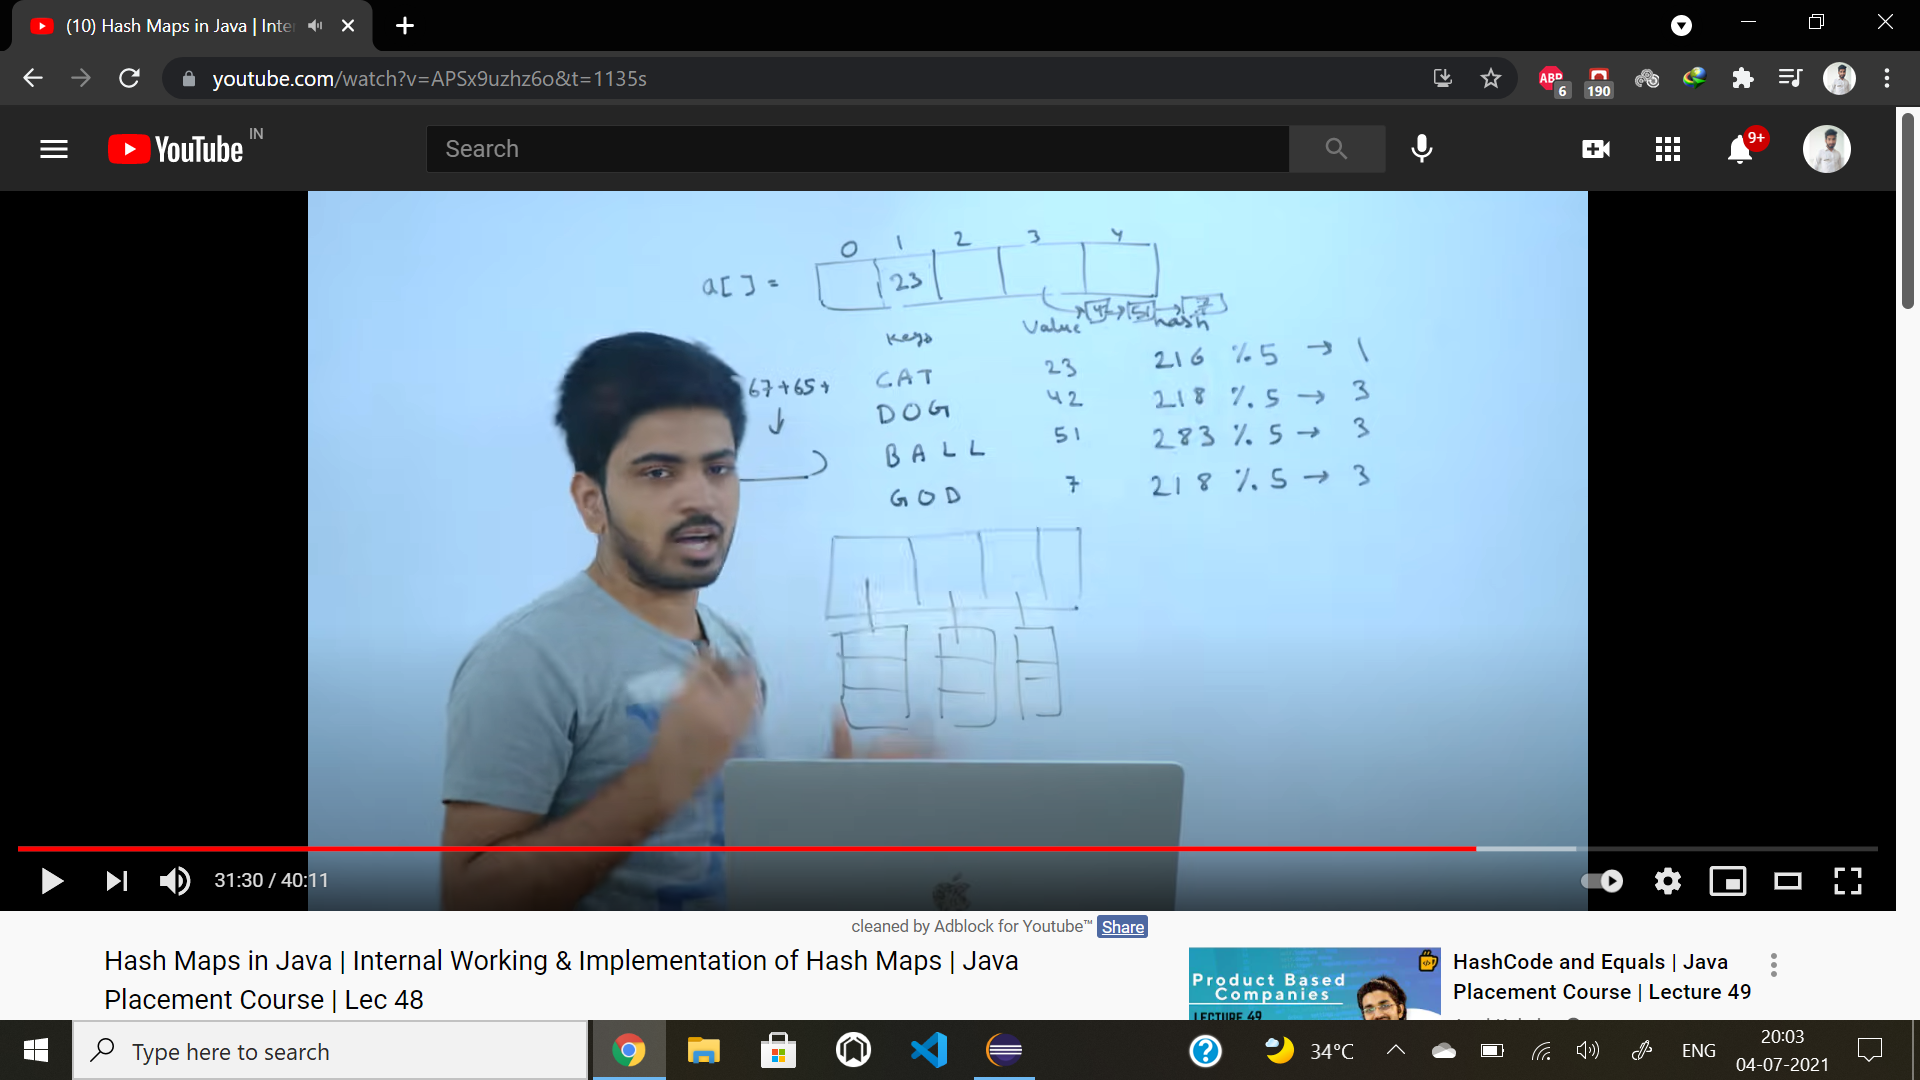 (10) Hash Maps in Java | Inte
youtube.com/watch?v=APSx9uzhz6o&t=1135s
ABP
6
190
YouTube IN
Search
9+
0 1 2 3 4
a[] = 23
42 51 7
Keys Value hash
CAT 23 216 % 5 → 1
67+65+
DOG 42 218 % 5 → 3
BALL 51 283 % 5 → 3
GOD 7 218 % 5 → 3
31:30 / 40:11
cleaned by Adblock for Youtube™ Share
Hash Maps in Java | Internal Working & Implementation of Hash Maps | Java
Placement Course | Lec 48
Product Based
Companies
LECTURE 49
HashCode and Equals | Java
Placement Course | Lecture 49
Type here to search
34°C
ENG
20:03
04-07-2021